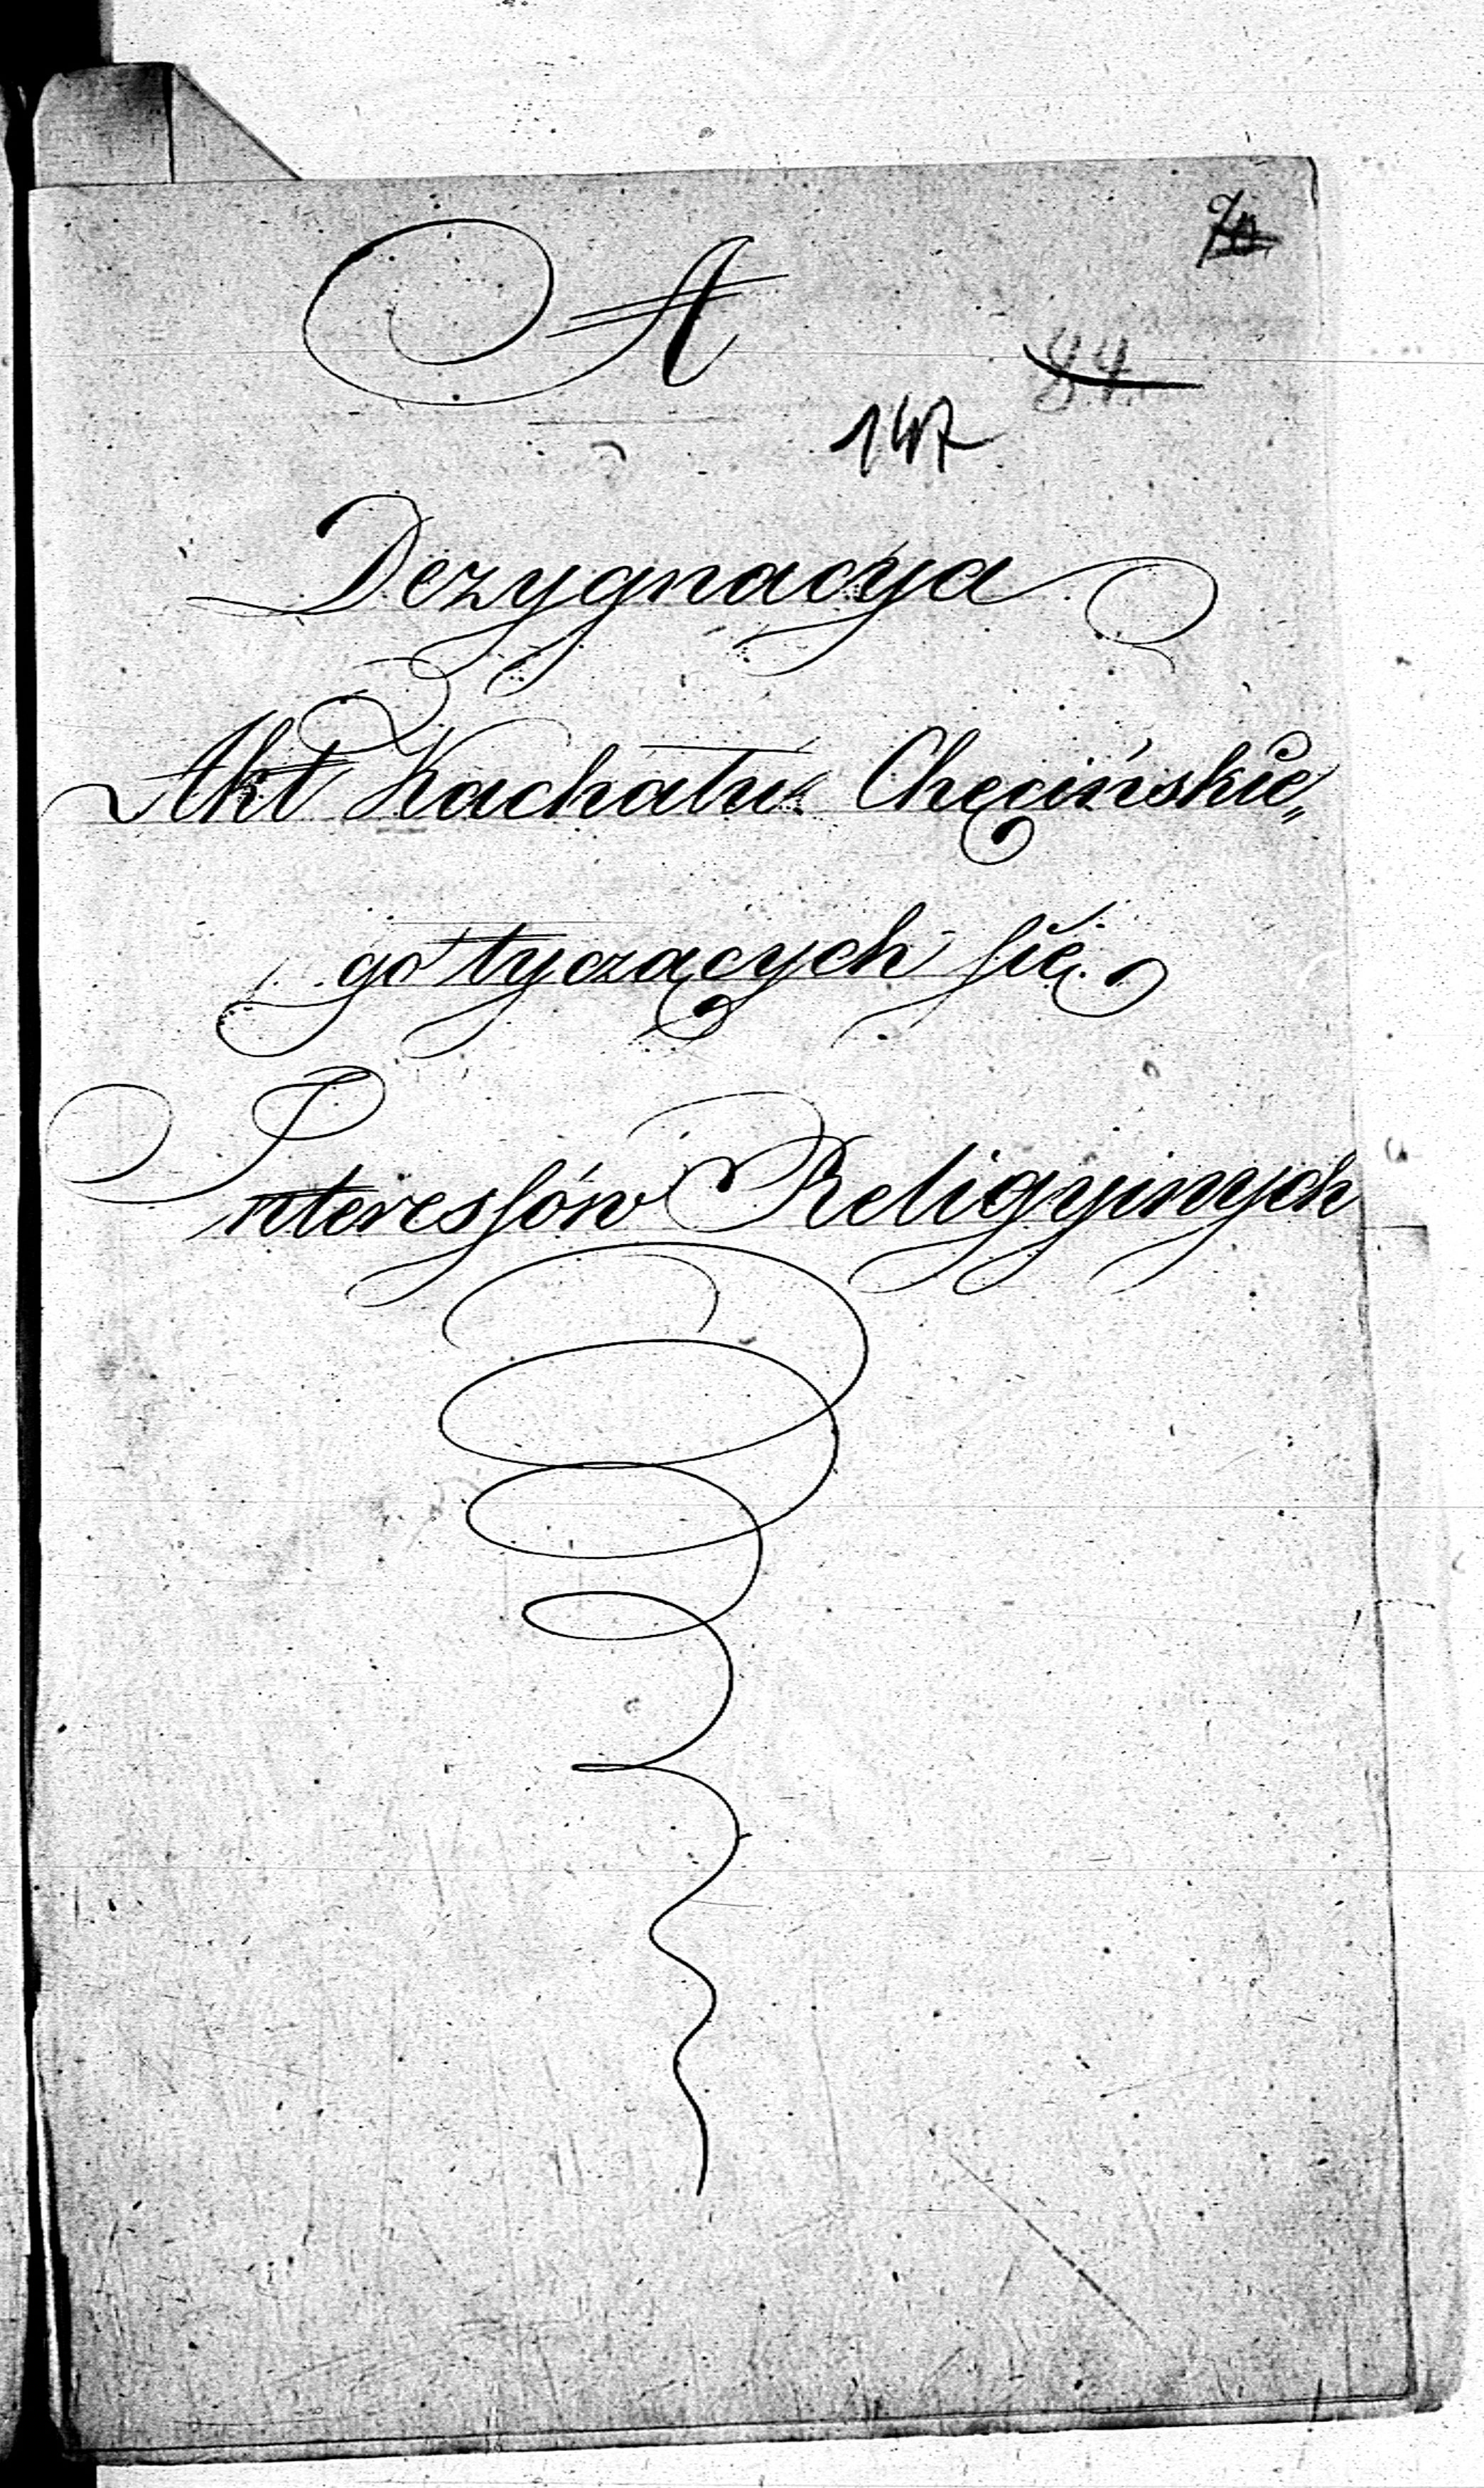 A
84
147
Dezygnacya
Akt Kachału Chęcińskie„
go tyczących się
Interessów Religyinych